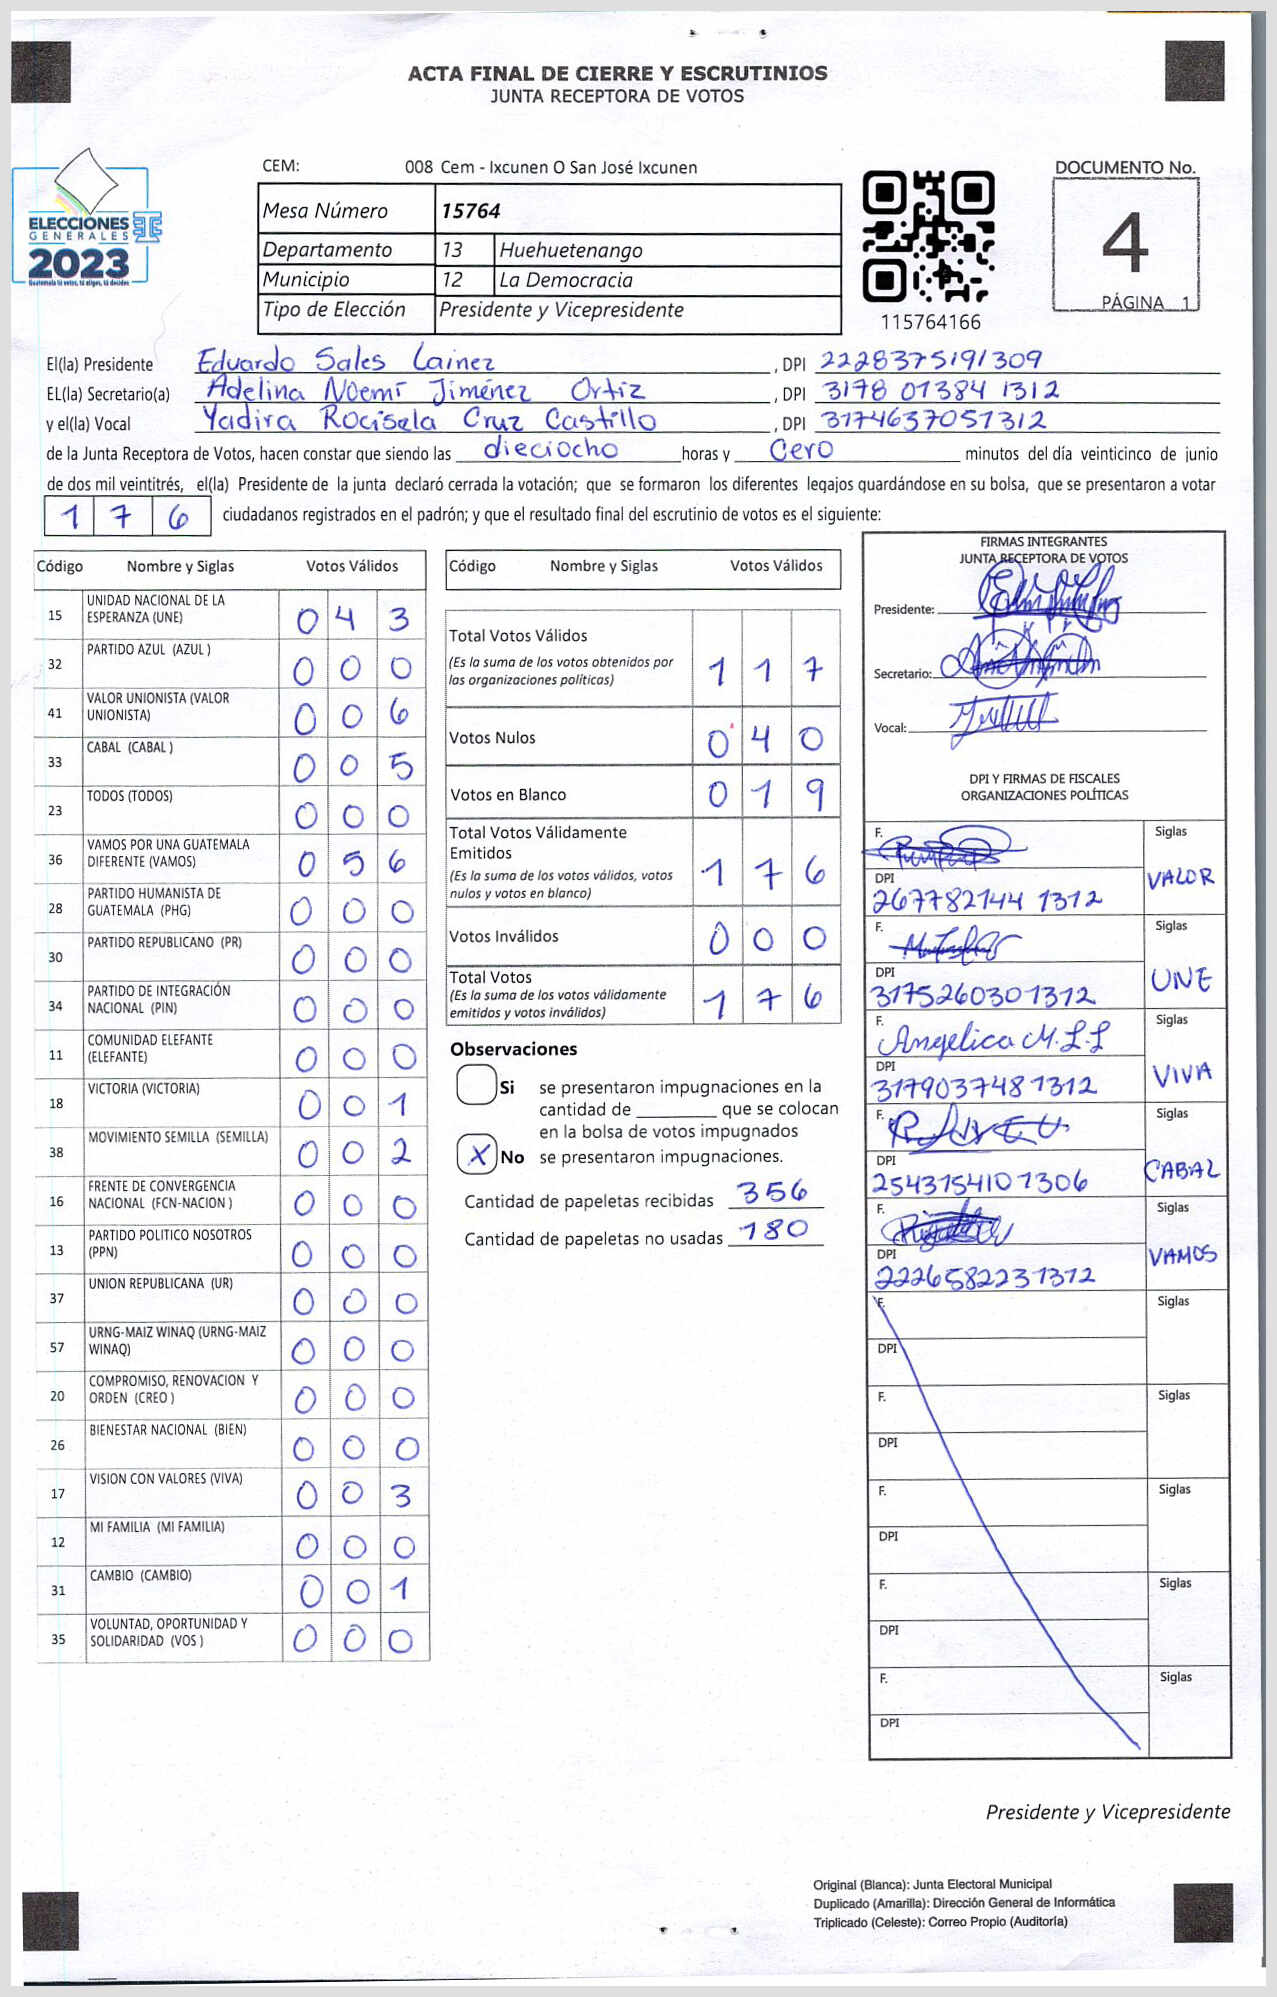 ACTA FINAL DE CIERRE Y ESCRUTINIOS
JUNTA RECEPTORA DE VOTOS
ELECCIONES
GENERALES
2023
Guatemala tú votas, tú eliges, tú decides
CEM: 008 Cem - Ixcunen O San José Ixcunen
Mesa Número 15764
Departamento 13 Huehuetenango
Municipio 12 La Democracia
Tipo de Elección Presidente y Vicepresidente
115764166
DOCUMENTO No.
4
PÁGINA 1
El(la) Presidente Eduardo Sales Lainez, DPI 2228375191309
EL(la) Secretario(a) Adelina Noemí Jiménez Ortiz, DPI 3178 01384 1312
y el(la) Vocal Yadira Rocisela Cruz Castillo, DPI 3174637051312
de la Junta Receptora de Votos, hacen constar que siendo las dieciocho horas y Cero minutos del día veinticinco de junio
de dos mil veintitrés, el(la) Presidente de la junta declaró cerrada la votación; que se formaron los diferentes legajos guardándose en su bolsa, que se presentaron a votar
1 7 6 ciudadanos registrados en el padrón; y que el resultado final del escrutinio de votos es el siguiente:
Código Nombre y Siglas Votos Válidos
15 UNIDAD NACIONAL DE LA ESPERANZA (UNE) 0 4 3
32 PARTIDO AZUL (AZUL ) 0 0 0
41 VALOR UNIONISTA (VALOR UNIONISTA) 0 0 6
33 CABAL (CABAL ) 0 0 5
23 TODOS (TODOS) 0 0 0
36 VAMOS POR UNA GUATEMALA DIFERENTE (VAMOS) 0 5 6
28 PARTIDO HUMANISTA DE GUATEMALA (PHG) 0 0 0
30 PARTIDO REPUBLICANO (PR) 0 0 0
34 PARTIDO DE INTEGRACIÓN NACIONAL (PIN) 0 0 0
11 COMUNIDAD ELEFANTE (ELEFANTE) 0 0 0
18 VICTORIA (VICTORIA) 0 0 1
38 MOVIMIENTO SEMILLA (SEMILLA) 0 0 2
16 FRENTE DE CONVERGENCIA NACIONAL (FCN-NACION ) 0 0 0
13 PARTIDO POLITICO NOSOTROS (PPN) 0 0 0
37 UNION REPUBLICANA (UR) 0 0 0
57 URNG-MAIZ WINAQ (URNG-MAIZ WINAQ) 0 0 0
20 COMPROMISO, RENOVACION Y ORDEN (CREO ) 0 0 0
26 BIENESTAR NACIONAL (BIEN) 0 0 0
17 VISION CON VALORES (VIVA) 0 0 3
12 MI FAMILIA (MI FAMILIA) 0 0 0
31 CAMBIO (CAMBIO) 0 0 1
35 VOLUNTAD, OPORTUNIDAD Y SOLIDARIDAD (VOS ) 0 0 0
Código Nombre y Siglas Votos Válidos
Total Votos Válidos 1 1 7
(Es la suma de los votos obtenidos por
las organizaciones políticas)
Votos Nulos 0 4 0
Votos en Blanco 0 1 9
Total Votos Válidamente
Emitidos 1 7 6
(Es la suma de los votos válidos, votos
nulos y votos en blanco)
Votos Inválidos 0 0 0
Total Votos 1 7 6
(Es la suma de los votos válidamente
emitidos y votos inválidos)
Observaciones
Si se presentaron impugnaciones en la
cantidad de ________ que se colocan
en la bolsa de votos impugnados
X No se presentaron impugnaciones.
Cantidad de papeletas recibidas 356
Cantidad de papeletas no usadas 180
FIRMAS INTEGRANTES
JUNTA RECEPTORA DE VOTOS
Presidente:
Secretario:
Vocal:
DPI Y FIRMAS DE FISCALES
ORGANIZACIONES POLÍTICAS
F. Siglas
DPI VALOR
267782144 1312
F. Siglas
DPI UNE
3175260301312
F. Angelica M.L.L Siglas
DPI VIVA
3179037481312
F. Siglas
DPI CABAL
2543154101306
F. Siglas
DPI VAMOS
2226582231312
F. Siglas
DPI
F. Siglas
DPI
F. Siglas
DPI
F. Siglas
DPI
F. Siglas
DPI
Presidente y Vicepresidente
Original (Blanca): Junta Electoral Municipal
Duplicado (Amarilla): Dirección General de Informática
Triplicado (Celeste): Correo Propio (Auditoría)